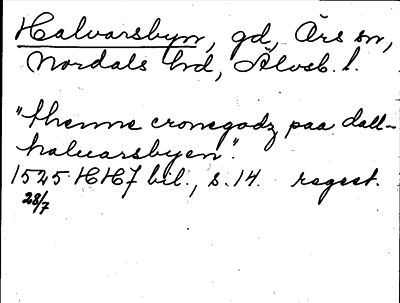 Halvarsbyn, gd, Ärs sn,
Nordals hd, Älvsb. l.
"thenne cronegodz paa dall-
haluarsbyen".
1525 HH7 bil., s. 14. regest.
28/7